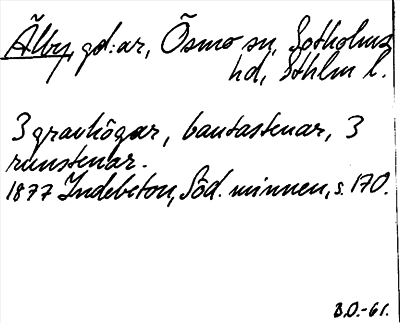 Älby, gd:ar, Ösmo sn, Sotholms
hd, Sthlm l.
3 gravhögar, bautastenar, 3
runstenar.
1877 Indebetou, Söd. minnen, s. 170.
B.O.-61.